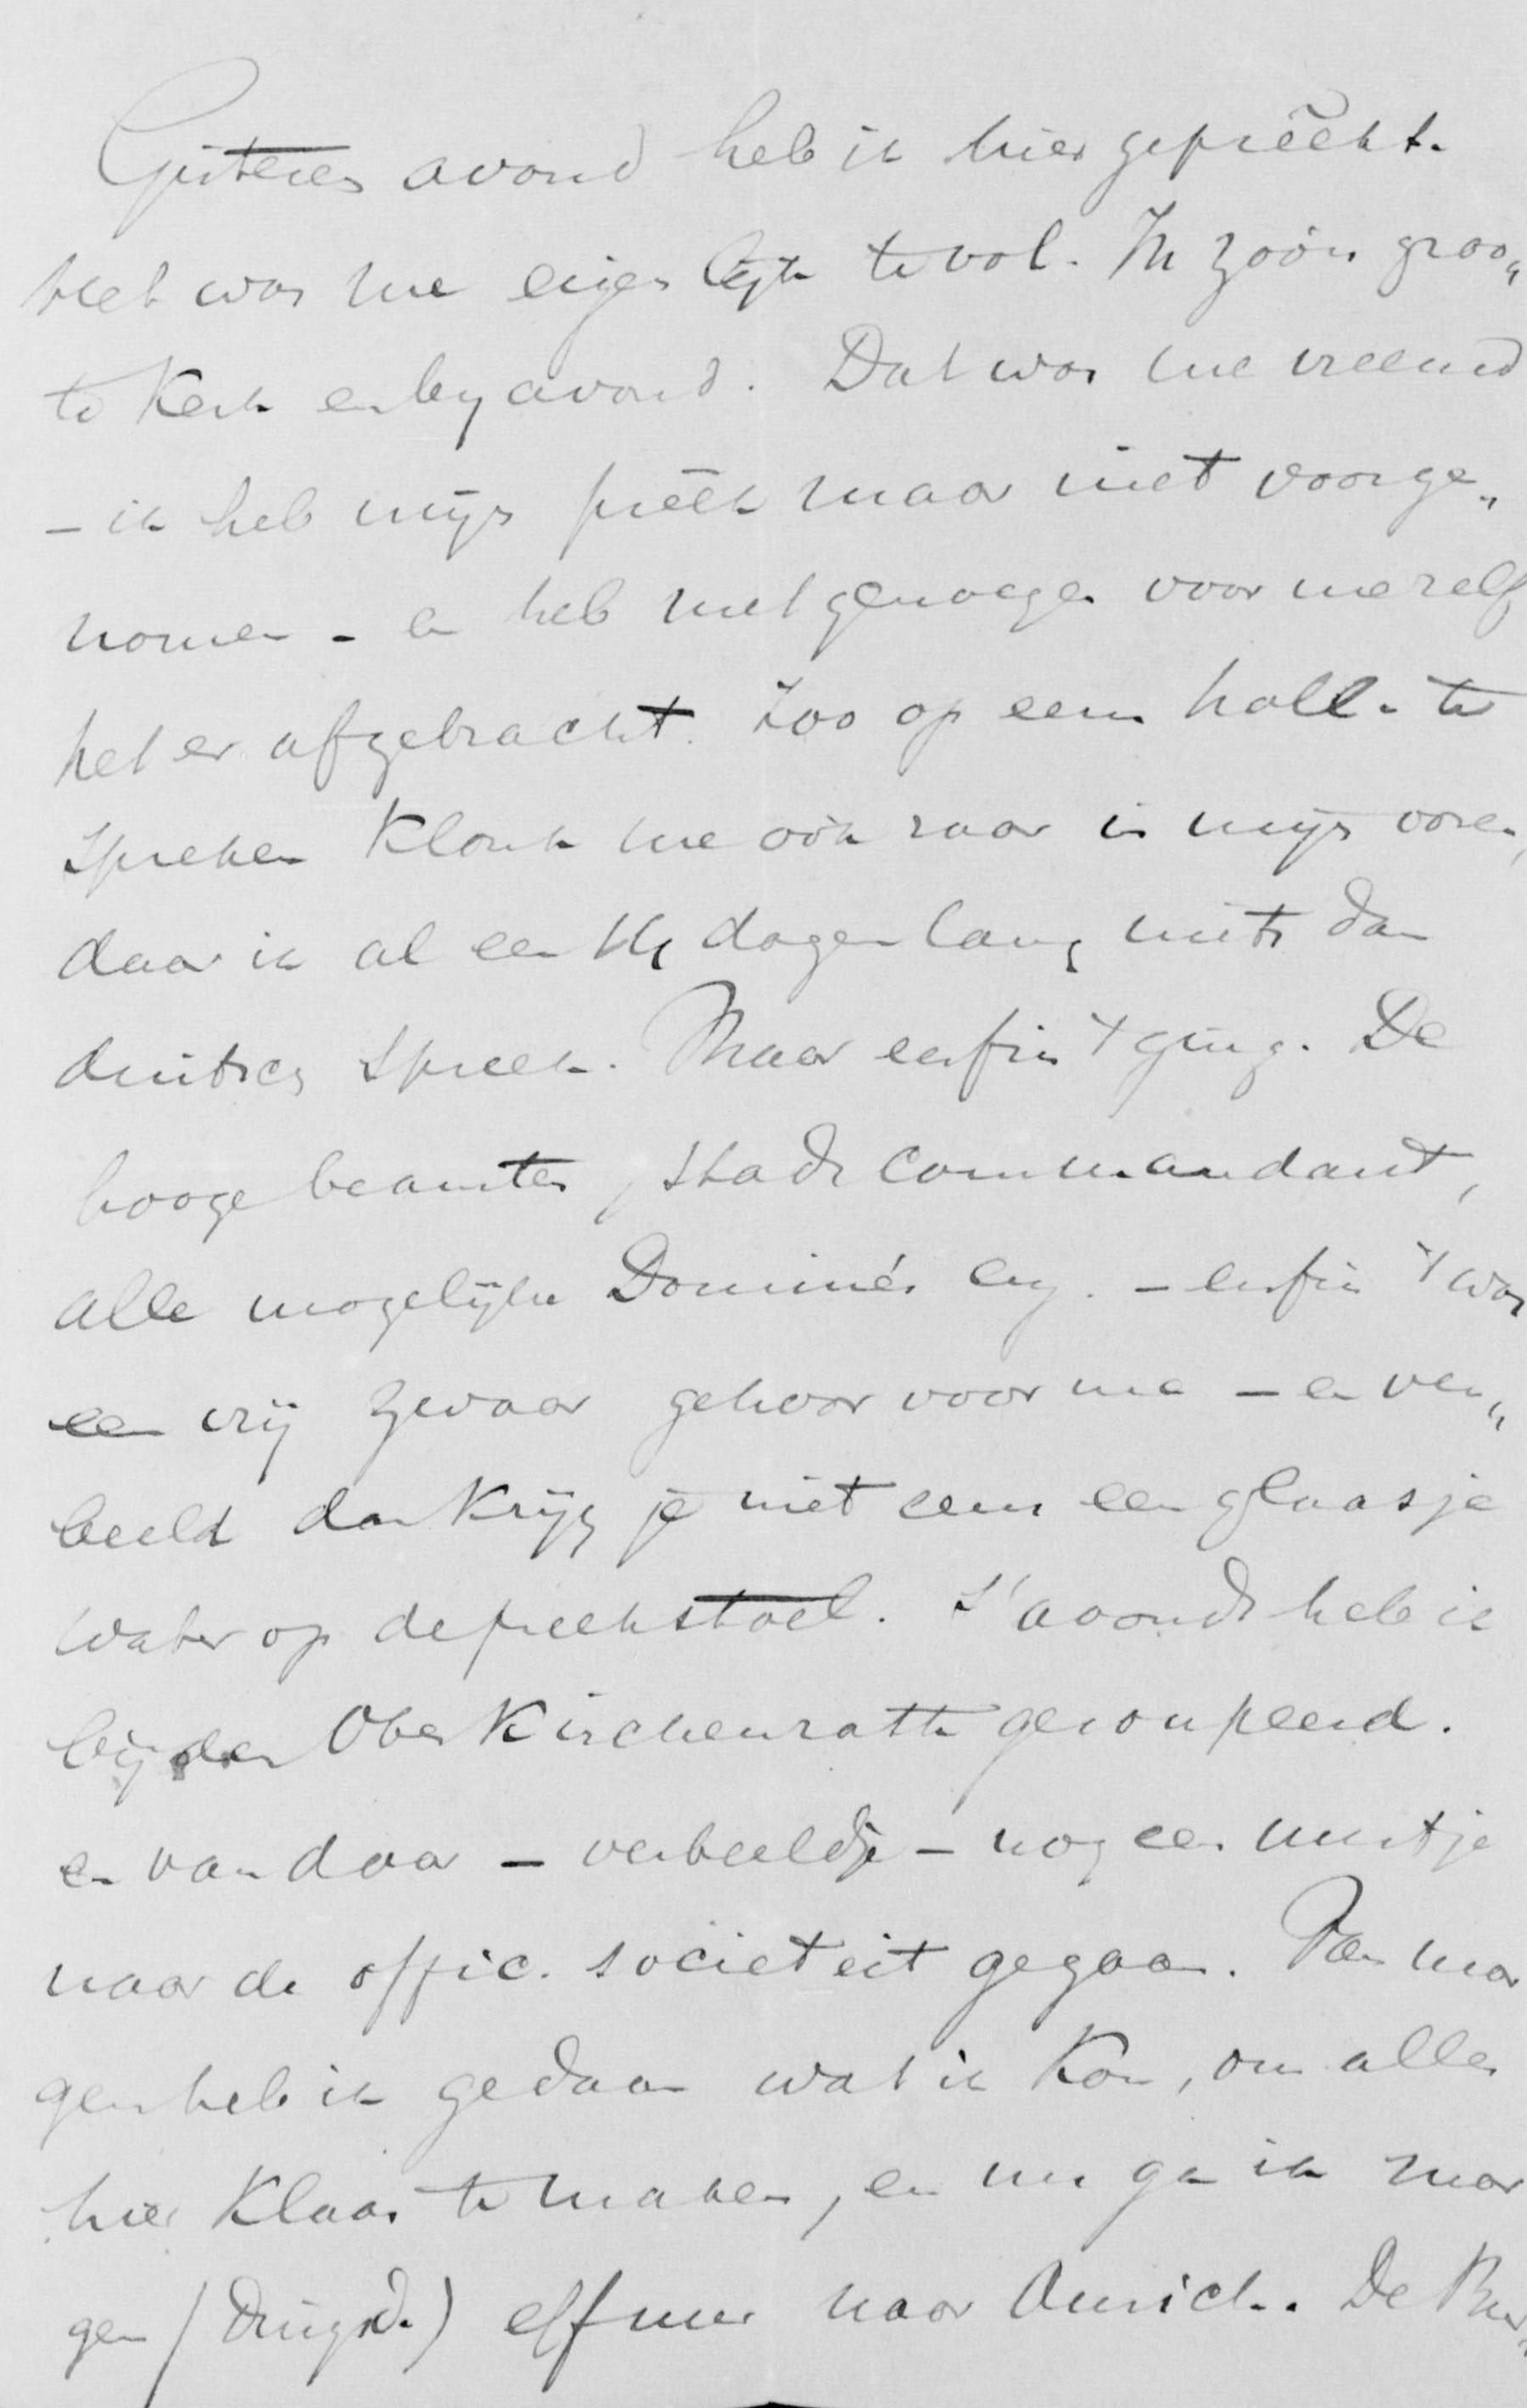 Gisteren avond heb ik hier gepreêkt.
Het was me eigenlijk te vol. In zoo'n groo„
te Kerk en by avond. Dat was me vreemd
– ik heb mijn preêk maar niet voorge„
nomen – en heb met genoegen voor mezelf
het er afgebracht. Zoo op eens holl. te
spreken klonk me ook raar in mijn ooren,
daar ik al een dagen lang niets dan
duitsch spreek. Maar enfin 't ging. De
hooge beamten, stads commandant,
alle mogelijke Dominés enz. – enfin 't was
een vrij zwaar gehoor voor me – en ver„
beeld dan krijg je niet eens een glaasje
water op de preekstoel. S'avonds heb ik
bij den Ober Kirchenrath gesoupeerd.
en van daar – verbeeldje – nog een uurtje
naar de offic. societeit gegaan. Van mor
gen heb ik gedaan wat ik kon, om alles
hier klaar te maken, en nu ga ik mor
gen (Dingsd.) elf uur naar Aurich. De Bur„